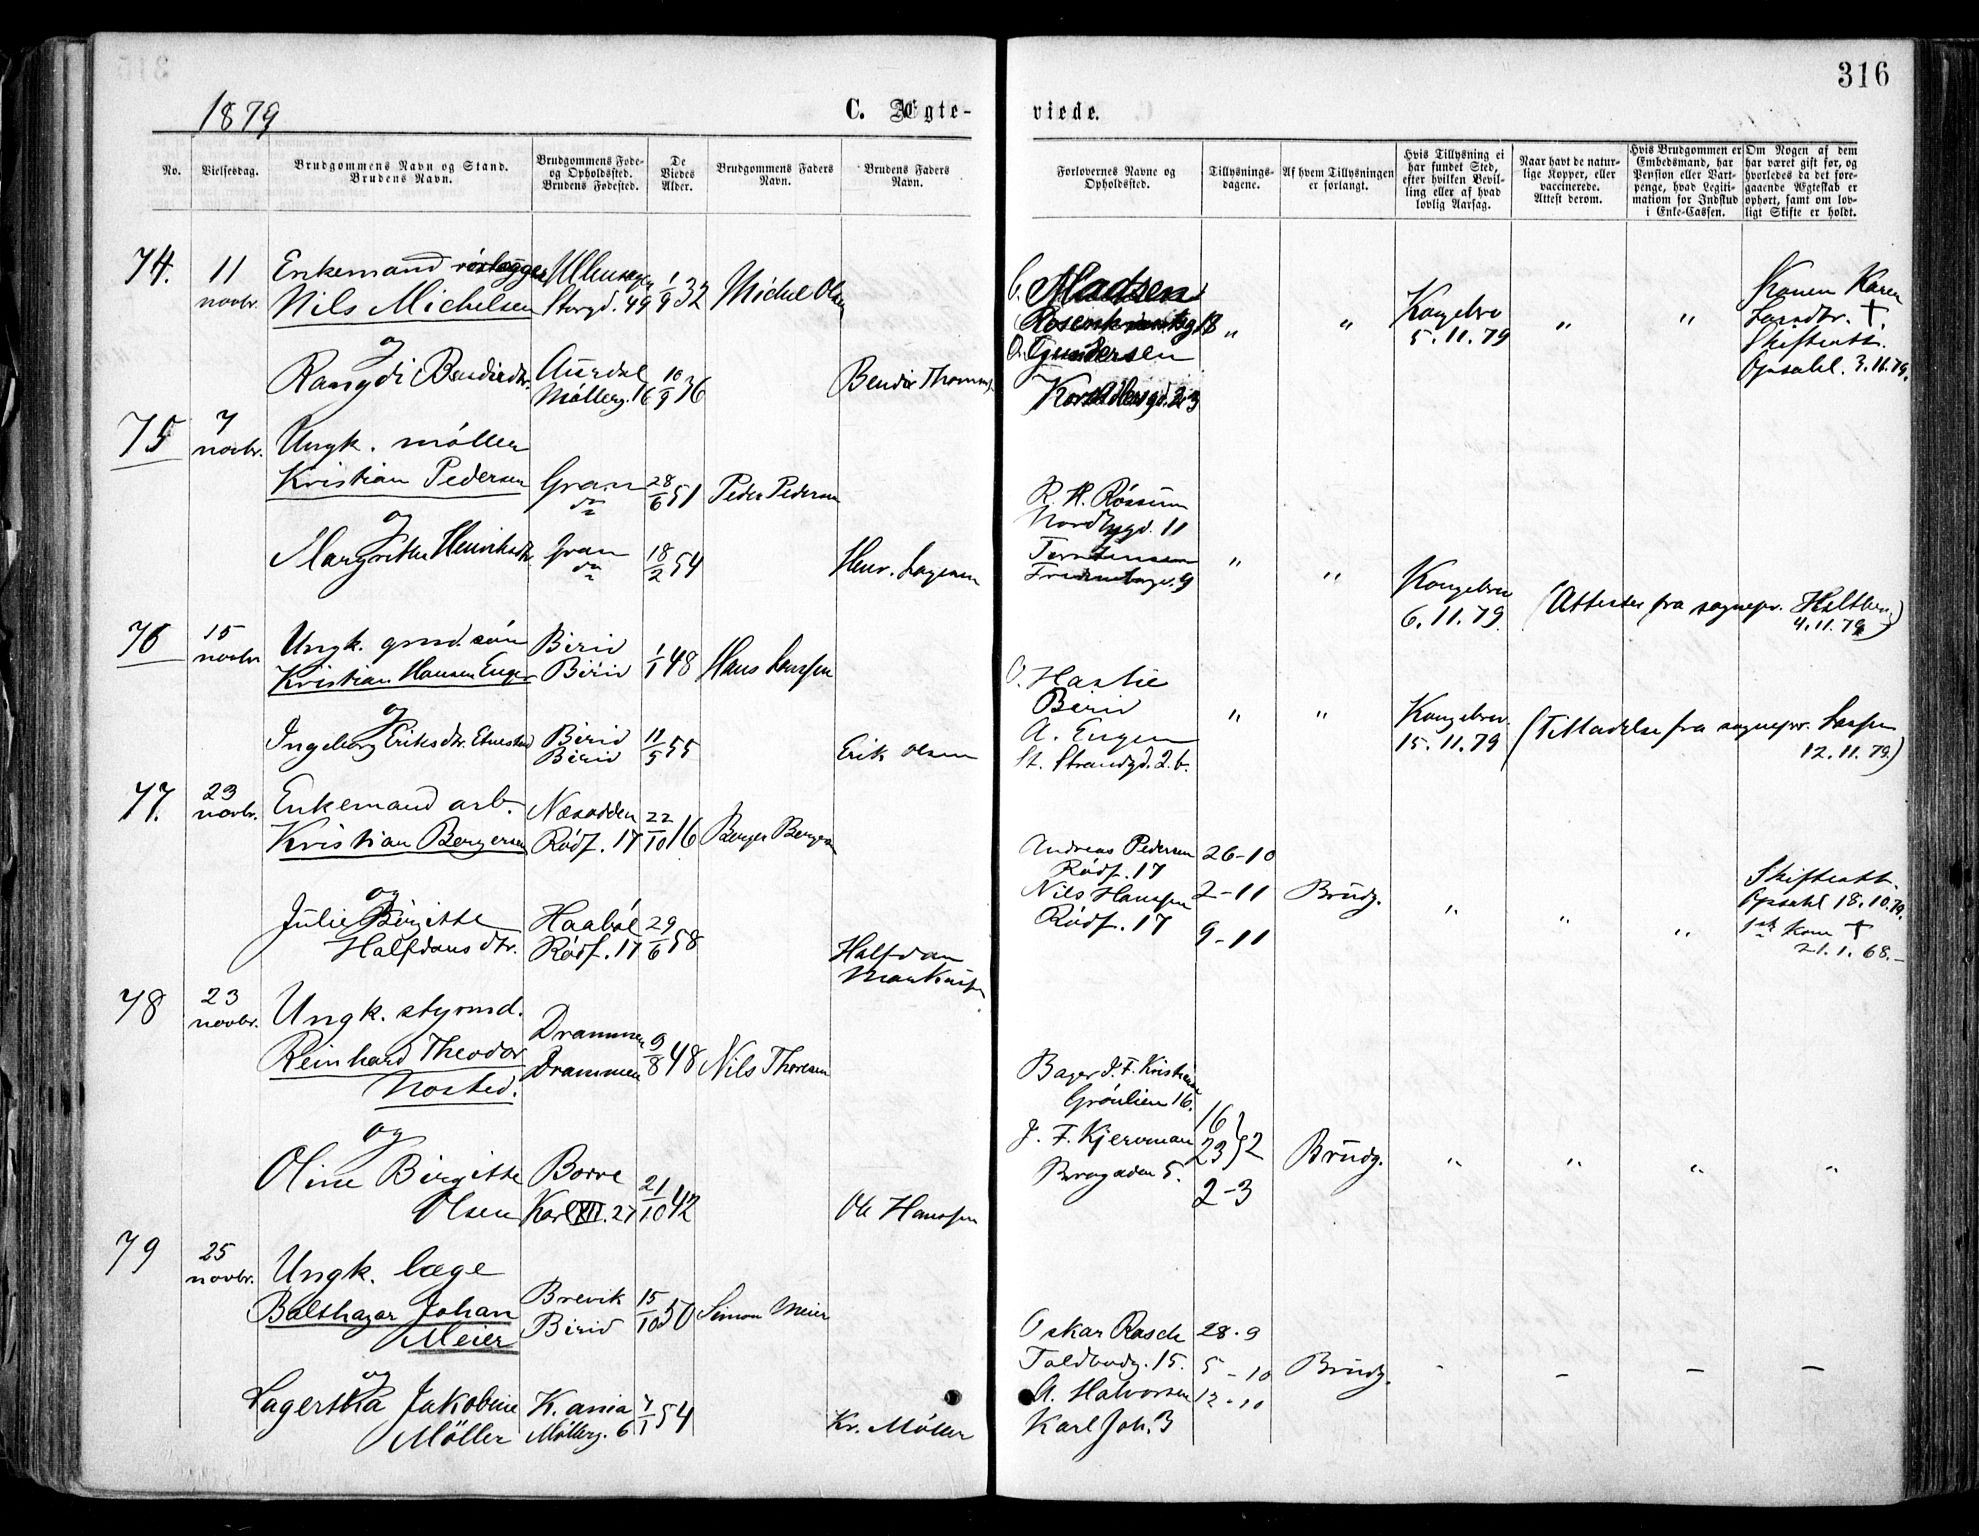 316
1879
C. Ægte-
viede.
No.
Vielsesdag.
Brudgommens Navn og Stand.
Brudens Navn.
Brudgommens Føde-
og Opholdssted.
Brudens Fødested.
De
Viedes
Alder.
Brudgommens Faders
Navn.
Brudens Faders
Navn.
Forlovernes Navne og
Opholdssted.
Tillysnings-
dagene.
Af hvem Tillysningen
er forlangt.
Hvis Tillysning ei
har fundet Sted,
efter hvilken Bevil-
ling eller af hvad
lovlig Aarsag.
Naar havt de natur-
lige Kopper, eller
vaccinerede.
Attest derom.
Hvis Brudgommen er
Embedsmand, har
Pension eller Vart-
penge, hvad Legiti-
mation for Indskud
i Enke-Cassen.
Om Nogen af dem
har været gift før, og
hvorledes da det fore-
gaaende Ægteskab er
ophørt, samt om lov-
ligt Skifte er holdt.
74.
11
novbr.
Enkemand
Nils Michelsen
og
Rangdi Bendixdtr.
Storgd. 49
1/9 32
Aurdal
Møllerg. 16
10/9 36
Michel Olsen
Bendix
Madsen
18
O. Gundersen
"
"
Kongebrev
5.11.79
"
"
Konen Karen
Larsdtr. †.
Skifteatt.
Opsahl. 3.11.79.
75
7
novbr.
Ungk. møller
Kristian Pedersen
og
Margrethe Henriksdtr
Gran
do
28/6 51
Gran
do
18/2 54
Peder Pedersen
Henr. Larsen
R. H. Røssum
Nordbygd. 11
9
"
"
Kongebrev
6.11.79.
(Attester fra sognepr.
4.11.79)
76
15
novbr
Ungk. grd.søn
Kristian Hansen Enger
og
Ingeborg Eriksdtr.
Birid
Birid
1/1 48
Birid
Birid
11/5 55
Hans Larssen
Erik Olsen
O. Hastie
Birid
A. Engen
St. Strandgd. 2.b.
"
"
Kongebrev.
15.11.79
(Tilladelse fra sognepr. Lassen
12.11.79.)
77.
23
novbr.
Enkemand arb.
Kristian Bergersen
og
Julie Birgitte
Halfdansdtr.
Næsodden
Rødf. 17
22/10 16
Haabøl
Rødf. 17
29/6 58
Berger Bergersen
Halfdan
Andreas Pedersen
Rødf. 17
Nils Hanssen
Rødf. 17
26-10
2-11
9-11
Brudg.
"
"
"
Skifteatt.
Opsahl 18.10.79.
1ste Kone †
21.1.68.-
78
23
novbr.
Ungk. styrmd.
Reinhard Theodor
Nosted.
og
Oline Birgitte
Olsen
Drammen
Drammen
9/8 48
Borre
Karl XII. 27
21/10 42
Nils Thoresen
Ole Hanssen
Bager J. F. Kristiansen
Grønlien 16.
J. F. Kjerrman
5.
16
23 } 2
2-3
Brudg.
"
"
"
"
79
25
novbr.
Ungk. læge
Balthazar Johan
Meier
og
Lagertha Jakobine
Møller
Brevik
Birid
15/10 50
K.ania
Møllerg. 6
7/1 54
Simon Meier
Kr. Møller
Oskar Rasch
Toldbodg. 15.
A. Halvorsen
Karl Joh. 3
28.9
5-10
12-10
Brudg.
-
-
-
-